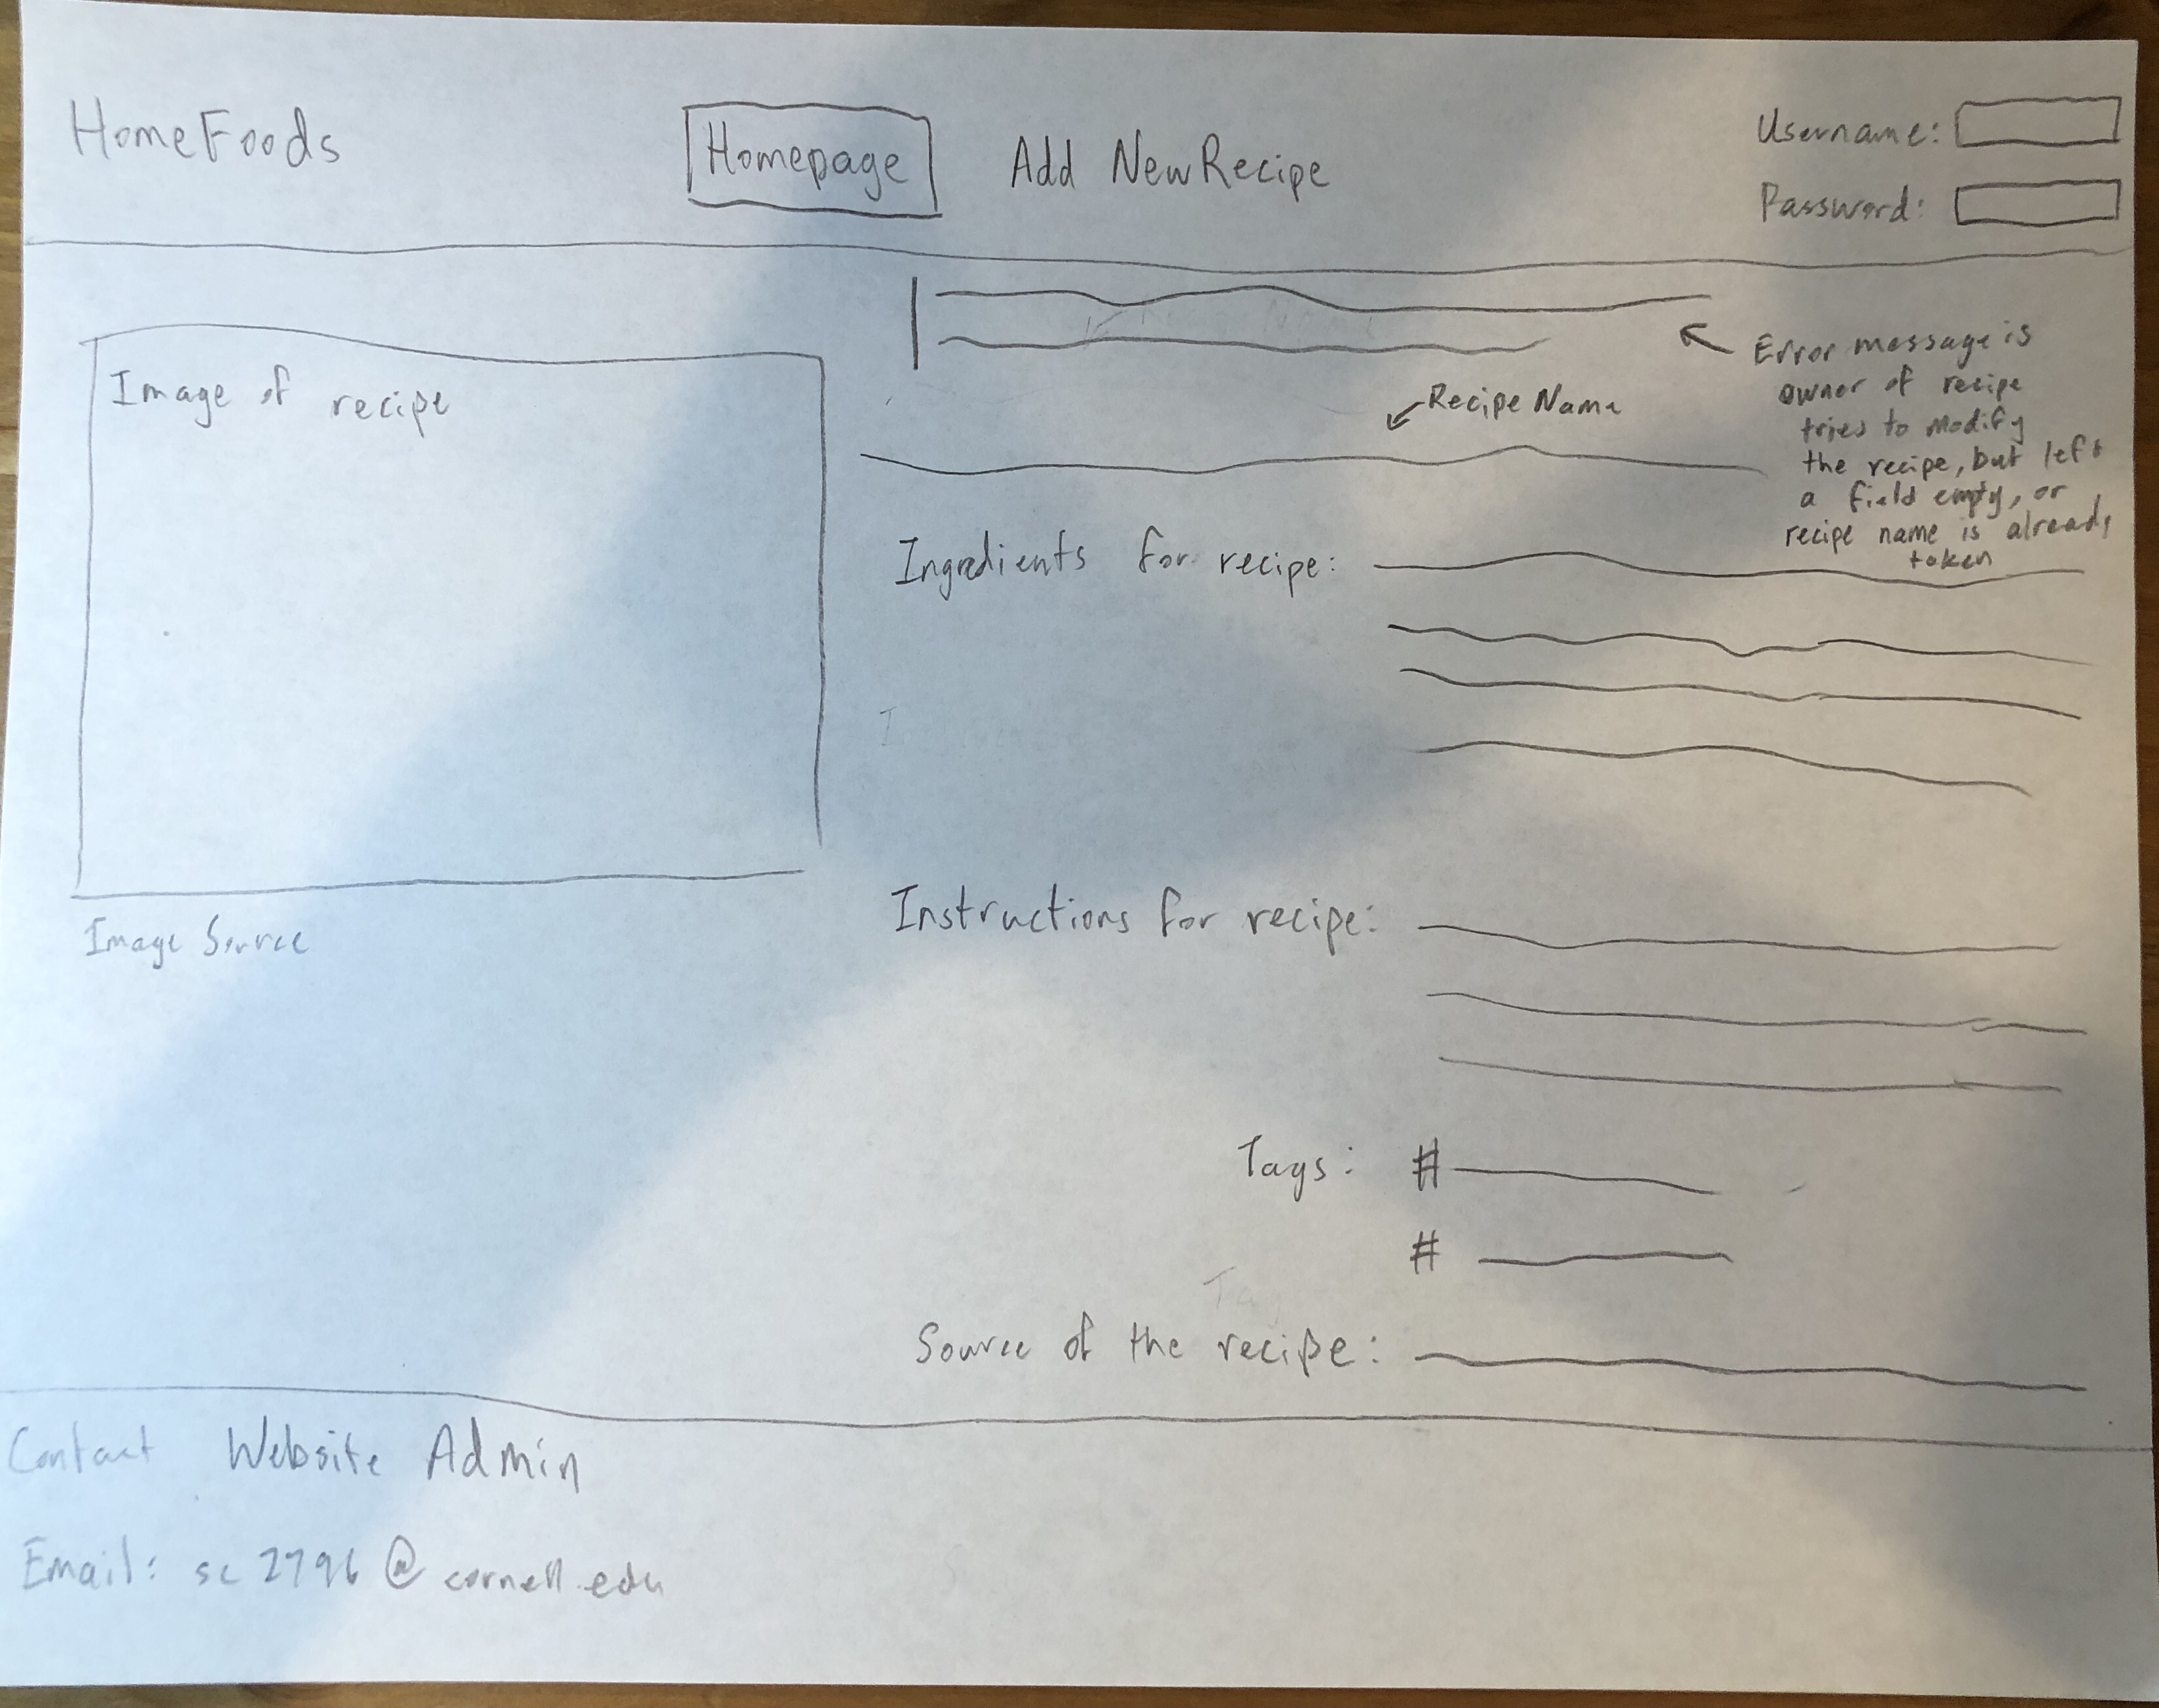 HomeFoods
Homepage
Add New Recipe
Username:
Password:
Error message is
owner of recipe
tries to modify
the recipe, but left
a field empty, or
recipe name is already
taken
Image of recipe
Recipe Name
Ingredients for recipe:
Image Source
Instructions for recipe:
Tags: #
#
Source of the recipe:
Contact Website Admin
Email: sc2796@cornell.edu